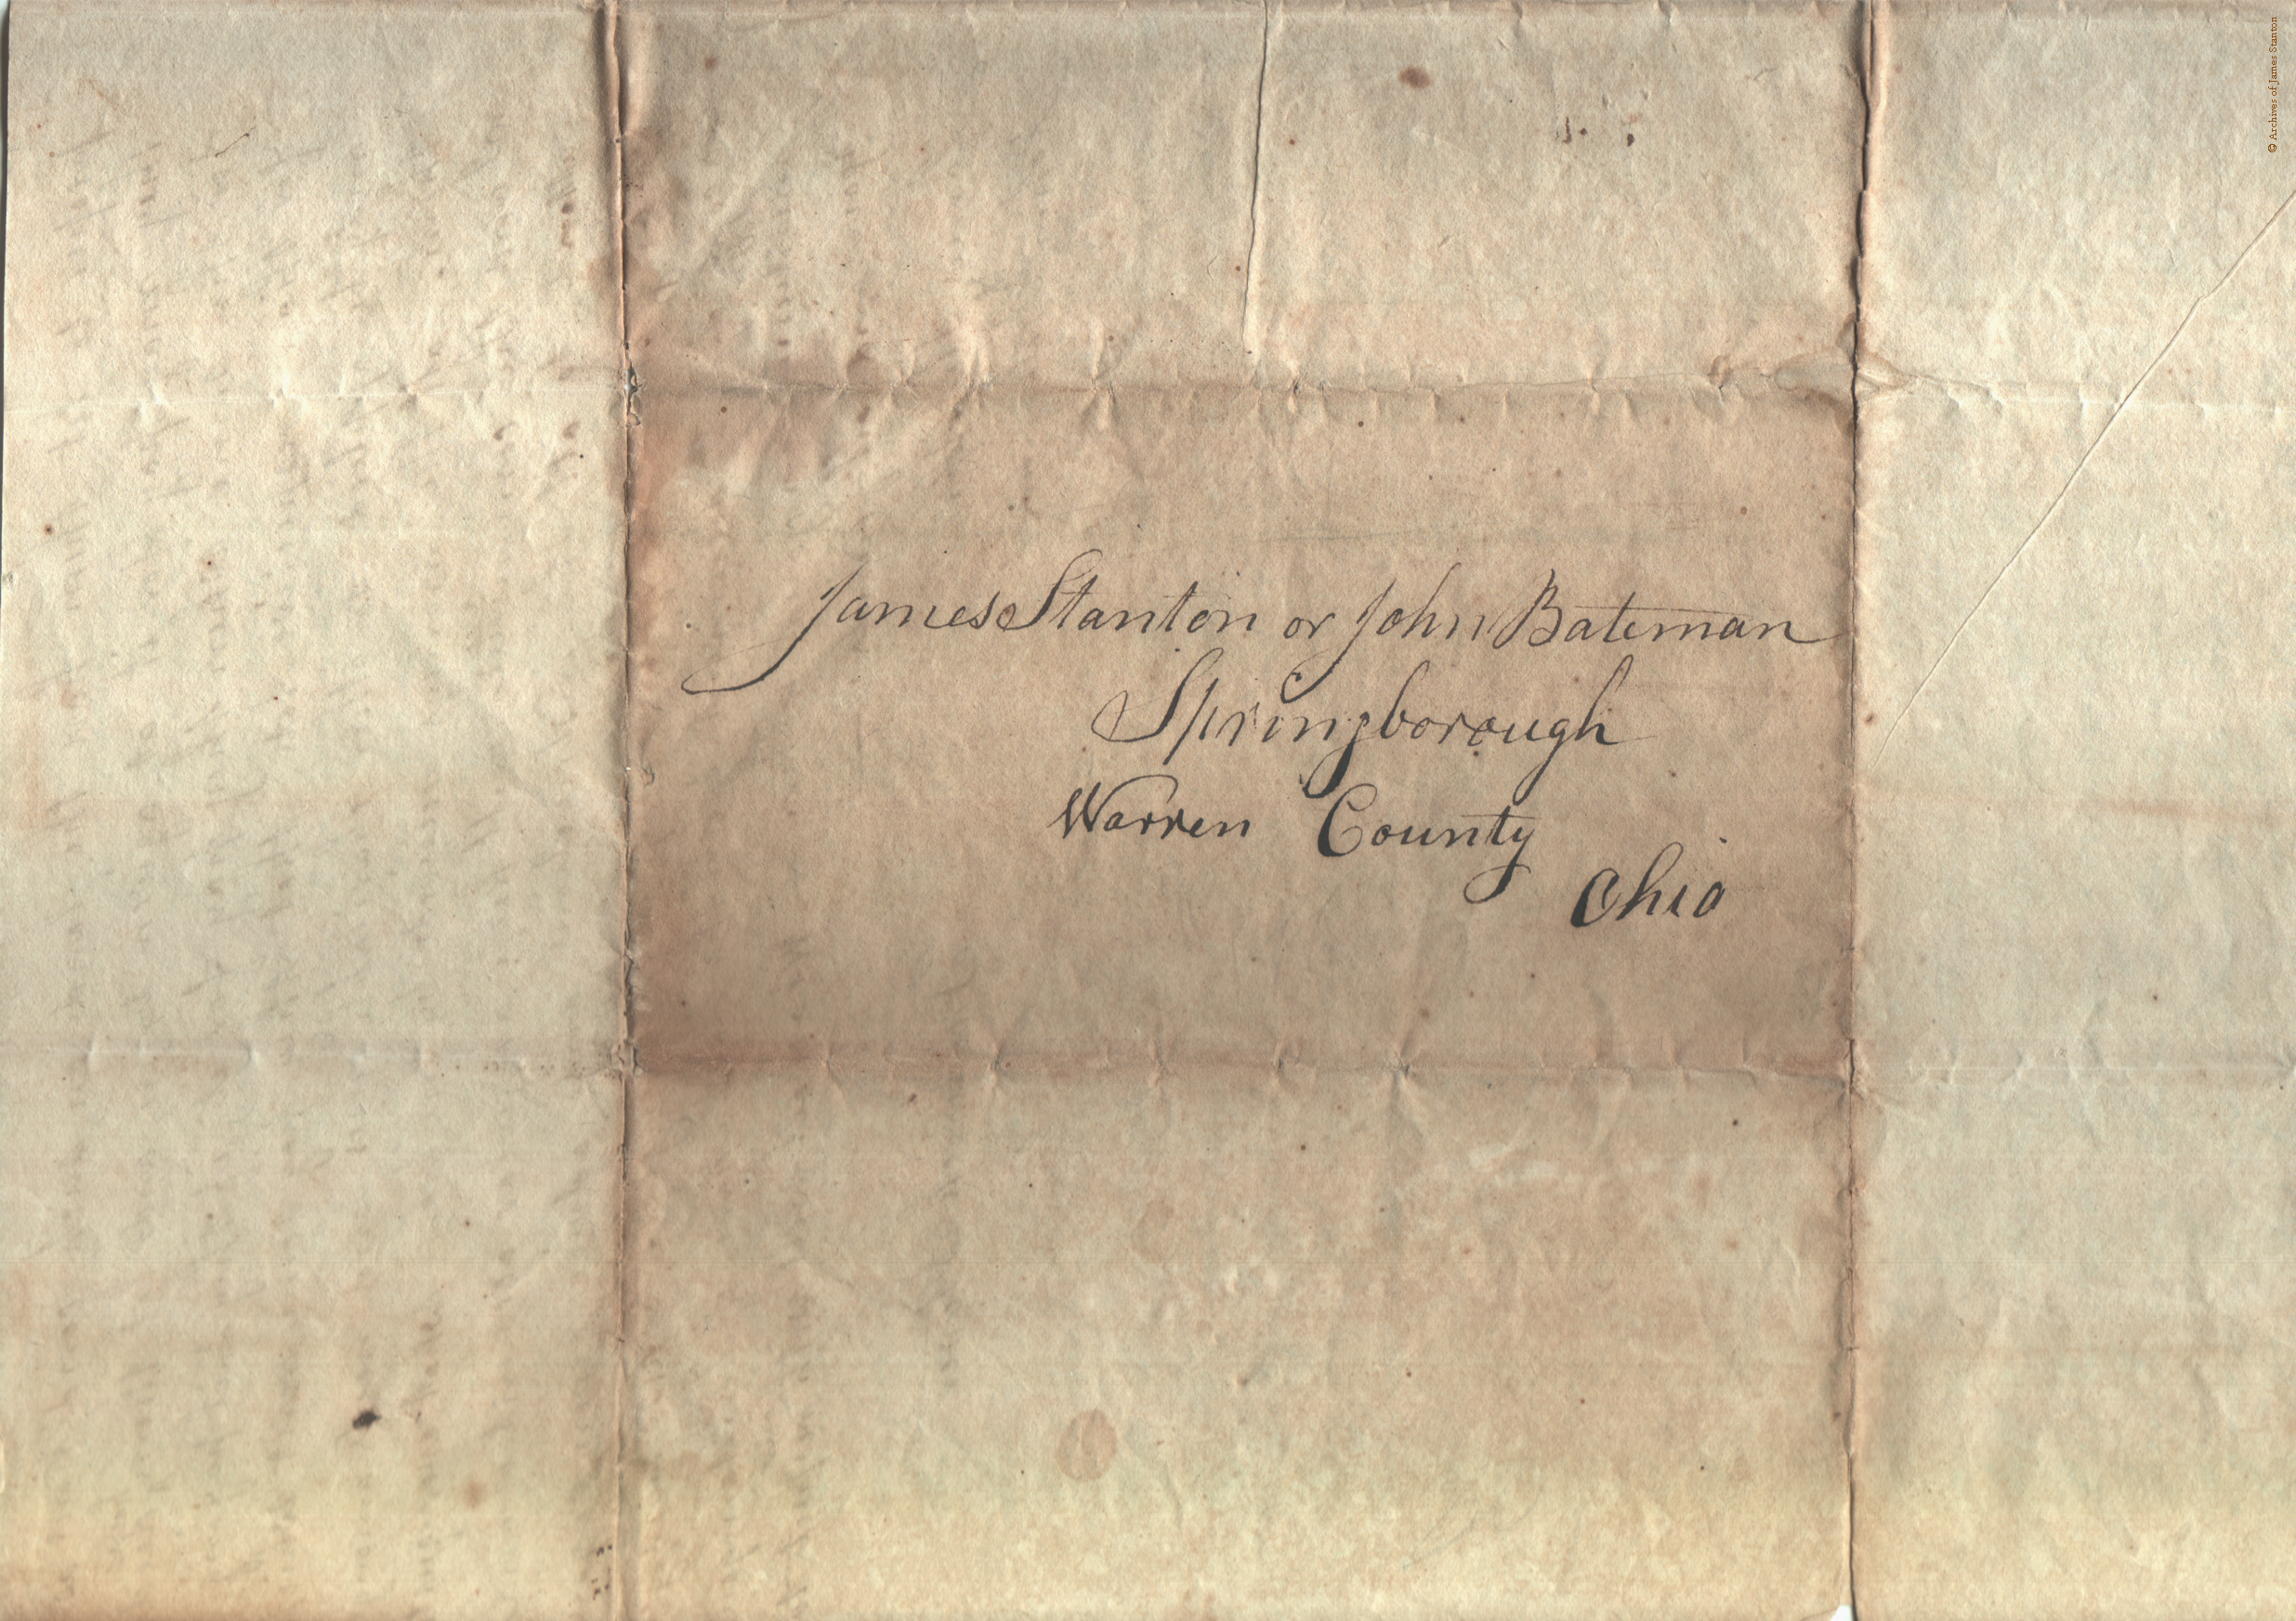 James Stanton or John Bateman
Springborough
Warren County
Ohio
© Archives of James Stanton